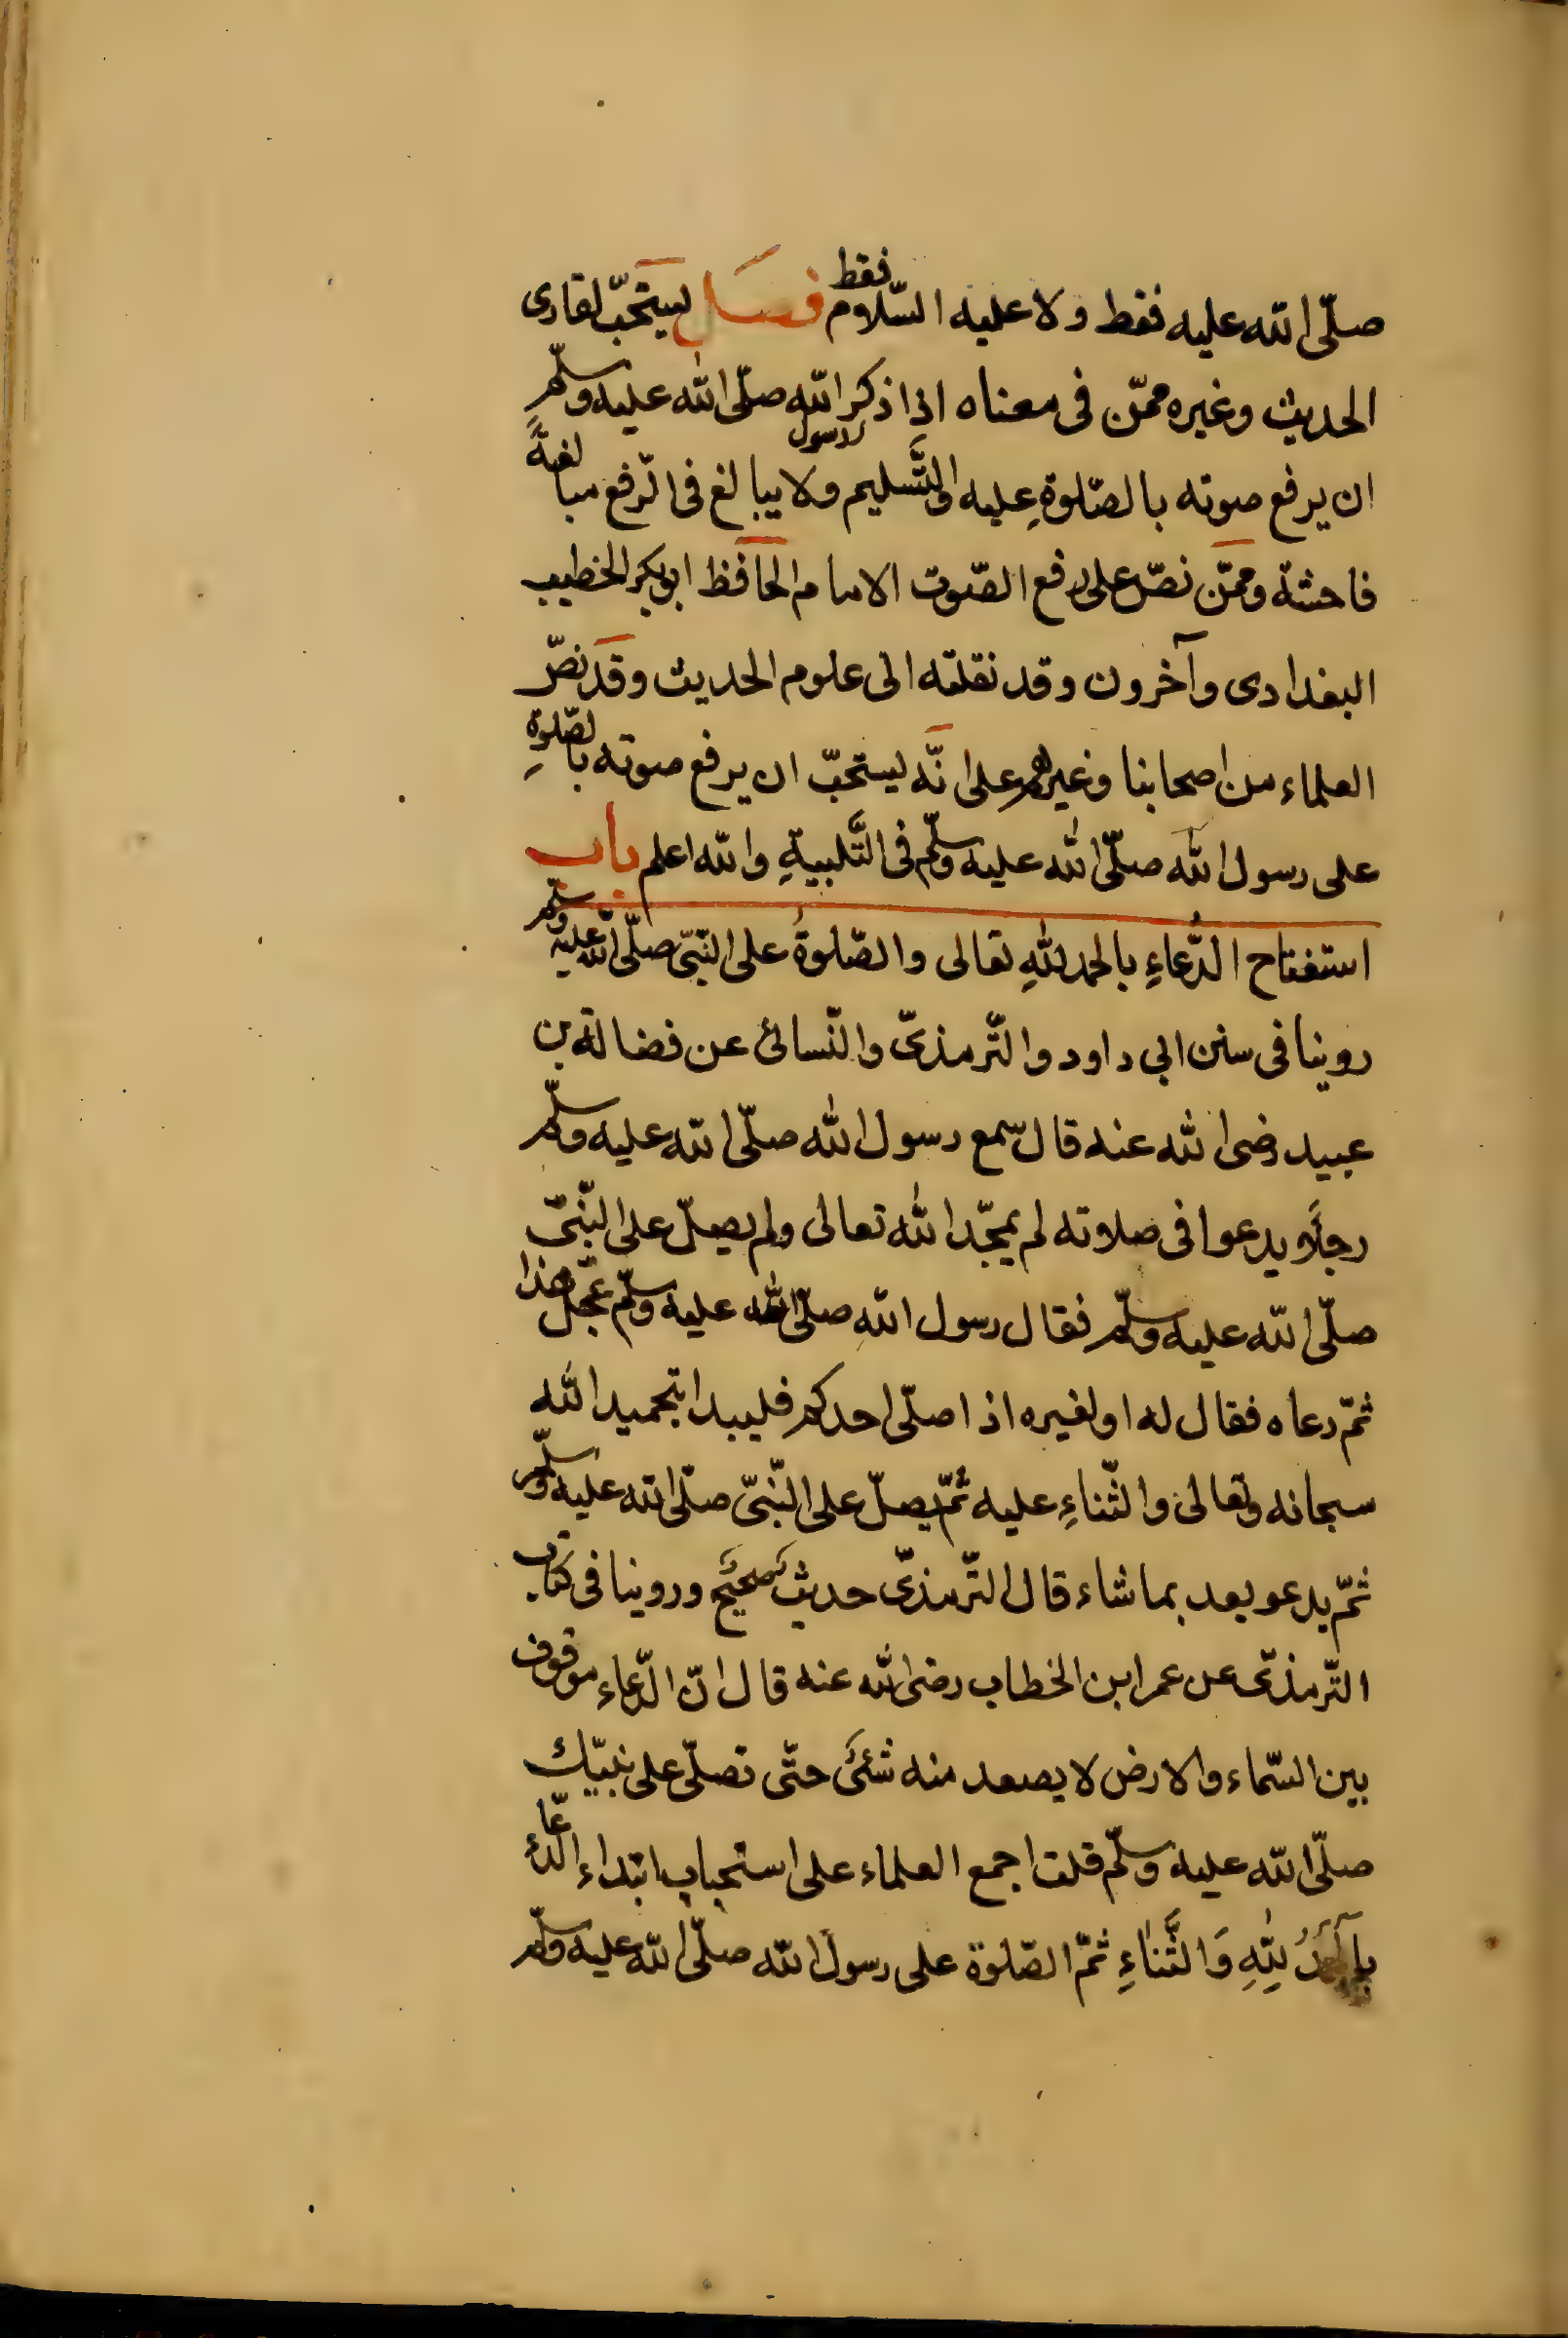 صلّى الله عليه فقط ولا عليه السّلام فقط فصل يستحبّ لقارى
الحديث وغيره ممّن فى معناه اذا ذكر رسول الله صلّى الله عليه وسلّم
ان يرفع صوته بالصّلوةِ عليه والتَّسليم ولا يبالغ فى الرّفع مبالغةً
فاحشة وممّن نصّ على رفع الصّوت الامام الحافظ ابو بكر الخطيب
البغدادى وآخرون وقد نقلته الى علوم الحديث وقد نصّ
العلماء من اصحابنا وغيرهم على انّه يستحبّ ان يرفع صوته بالصّلوةِ
على رسول الله صلّى الله عليه وسلّم فى التَّلبيةِ والله اعلم باب
استفتاح الدُّعاءِ بالحمد للهِ تعالى والصّلوةُ على النّبىّ صلّى الله عليه وسلّم
روينا فى سنن ابى داود والتّرمذىّ والنّسائى عن فضالة بن
عبيد رضى الله عنه قال سمع رسول الله صلّى الله عليه وسلّم
رجلًا يدعوا فى صلاته لم يمجّد الله تعالى ولم يصلّ على النّبىّ
صلّى الله عليه وسلّم فقال رسول الله صلّى الله عليه وسلّم عجّل هذا
ثمّ دعاه فقال له او لغيره اذا صلّى احدكم فليبدا بتحميد الله
سبحانه وتعالى والثّناءِ عليه ثمّ يصلّ على النّبىّ صلّى الله عليه وسلّم
ثمّ يدعو بعد بما شاء قال التّرمذىّ حديث صحيح وروينا فى كتاب
التّرمذىّ عن عمر ابن الخطاب رضى الله عنه قال انّ الدّعاء موقوف
بين السّماء والارض لا يصعد منه شئى حتّى تصلّى على نبيّك
صلّى الله عليه وسلّم قلت اجمع العلماء على استحباب ابتداء الدّعاء
بالحمدُ لِلّهِ وَالثَّنَاءِ ثمّ الصّلوة على رسول الله صلّى الله عليه وسلّم